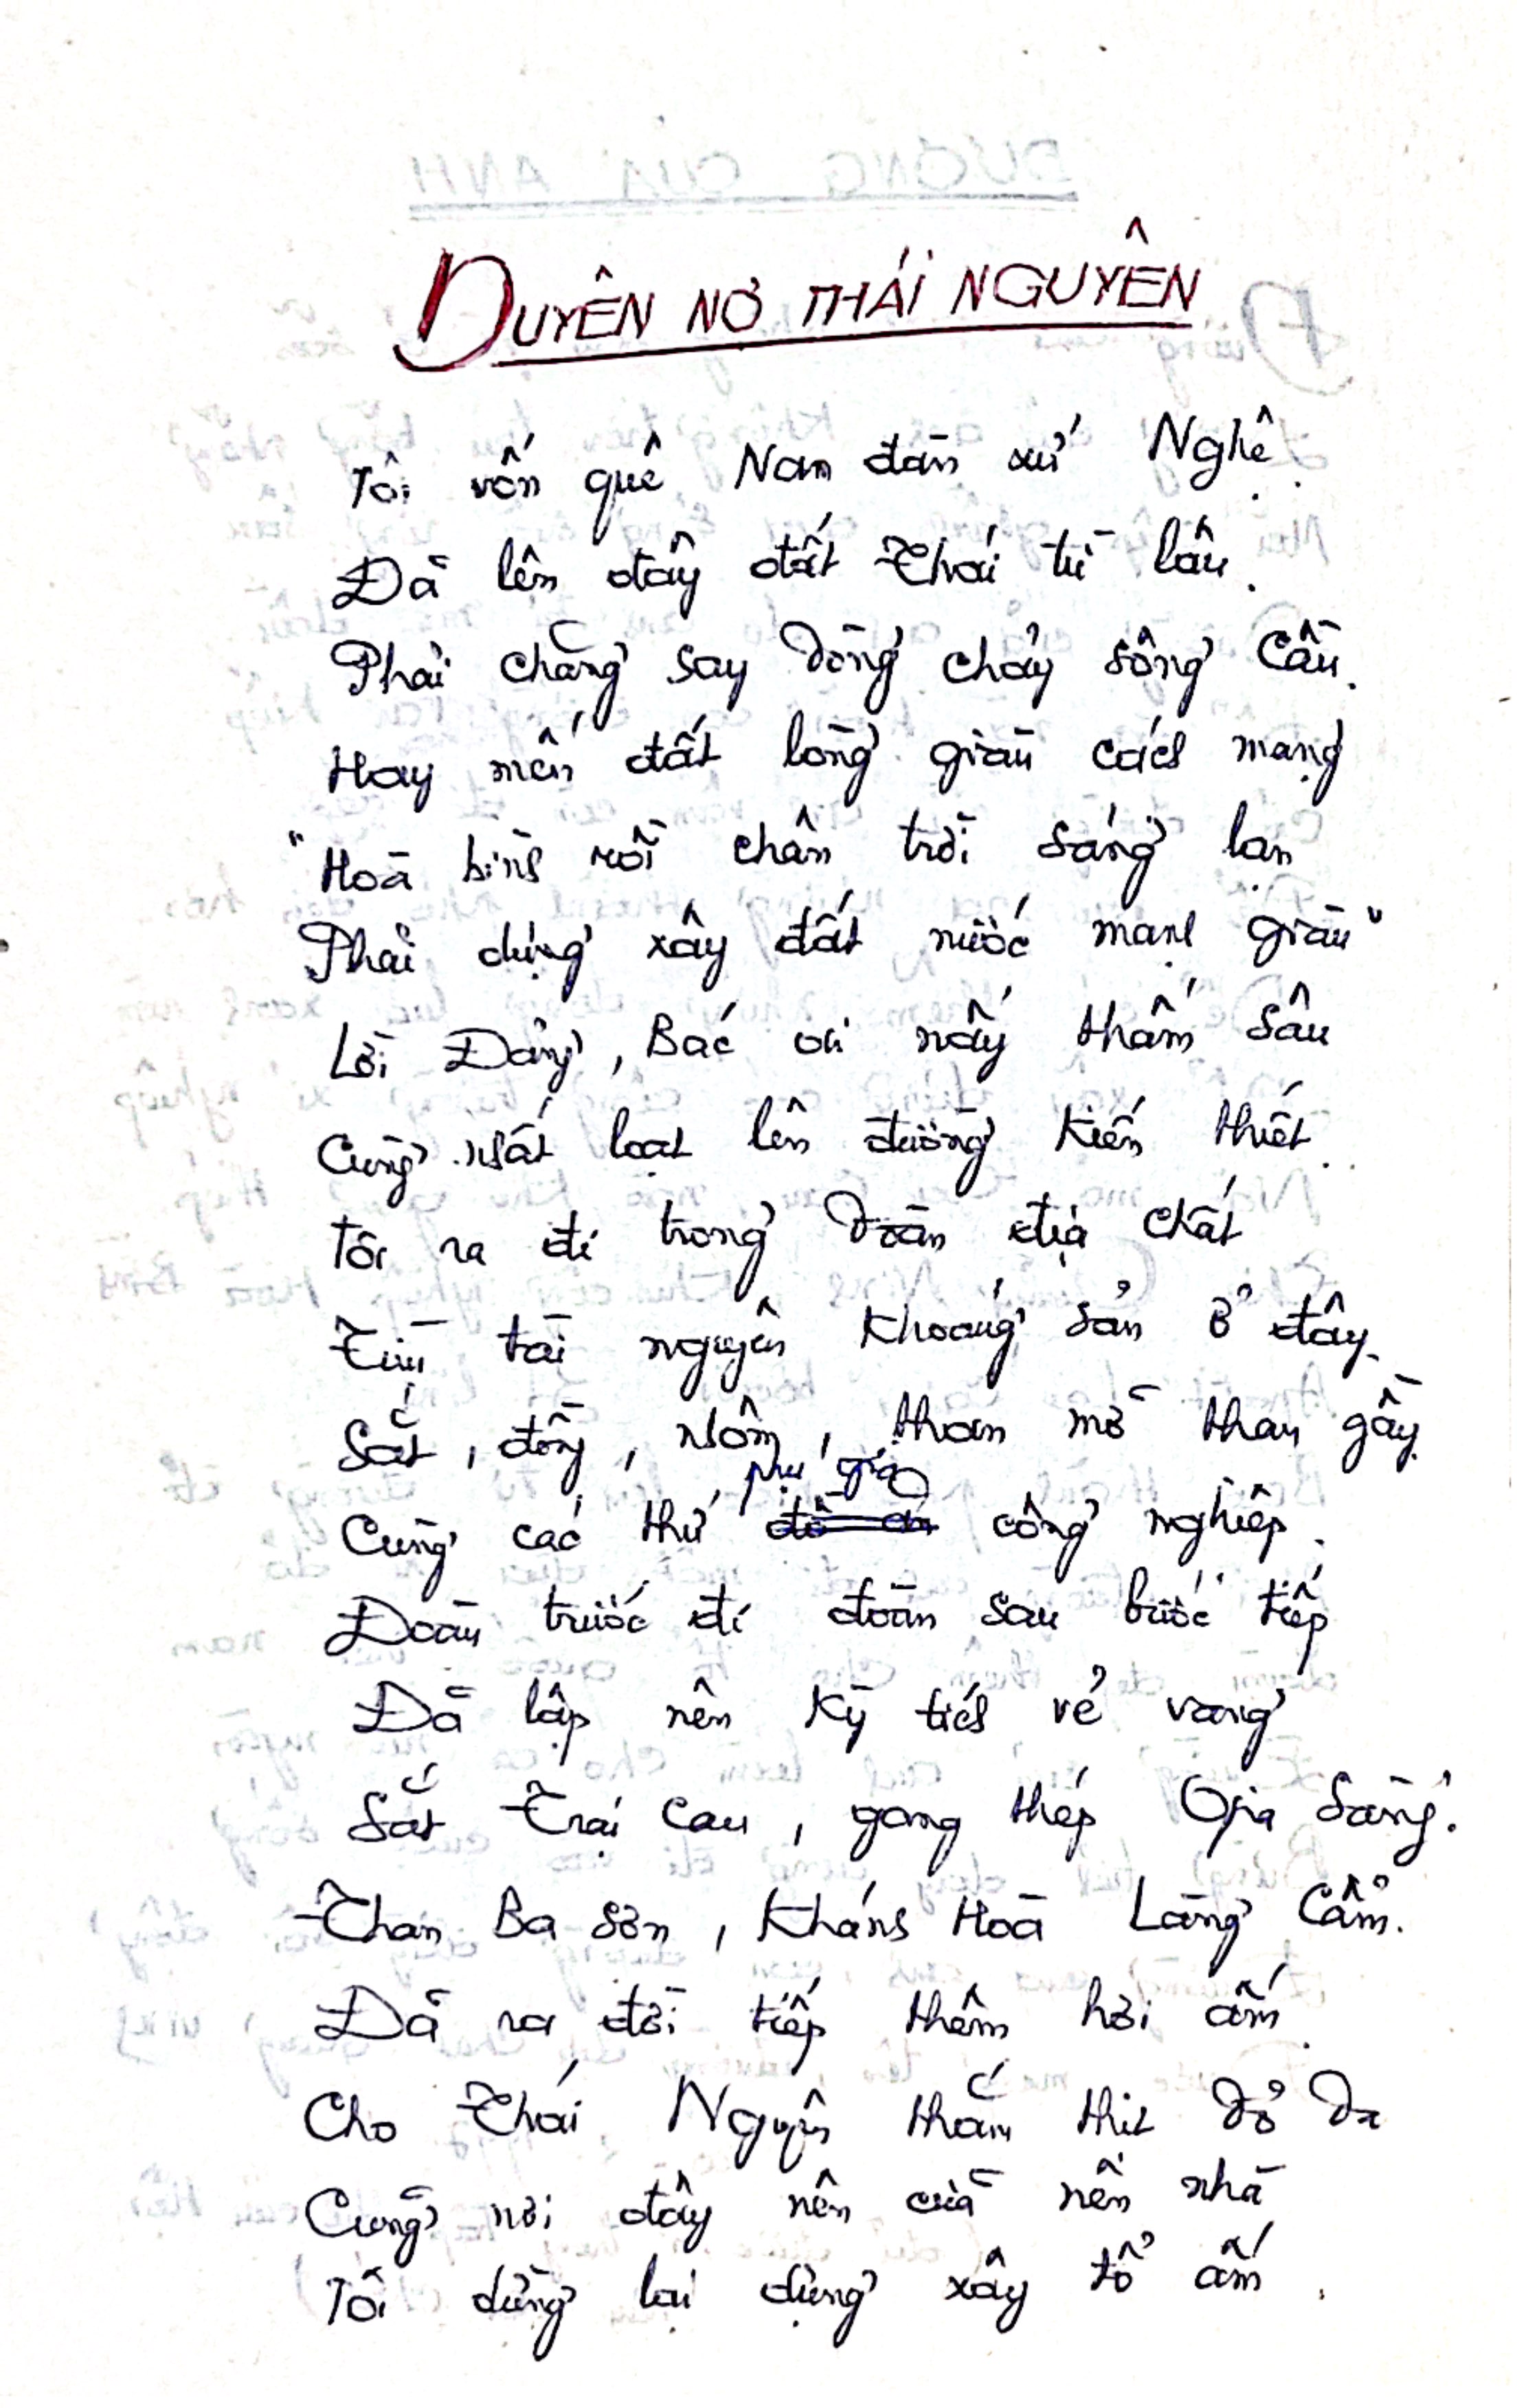 DUYÊN NỢ THÁI NGUYÊN
Tôi vốn quê Nam đàn xứ Nghệ.
Đã lên đây đất Thái từ lâu.
Phải chăng say dòng chảy sông Cầu.
Hay mến đất lòng giàu cách mạng
"Hoà bình rồi chân trời sáng lạn
Phải dựng xây đất nước mạnh giàu"
Lời Đảng, Bác ơi nấy thấm sâu
Cùng nhất loạt lên đường kiến thiết.
Tôi ra đi trong đoàn địa chất
Tìm tài nguyên khoáng sản ở đây.
Sắt, đồng, nhôm, than mỡ than gầy.
phụ gia
Cùng các thứ công nghiệp.
Đoàn trước đi đoàn sau bước tiếp
Đã lập nên kỳ tích vẻ vang
Sắt Trại Cau, gang thép Gia Sàng.
Than Ba Sơn, Khánh Hoà Làng Cẩm.
Đã ra đời tiếp thêm hơi ấm.
Cho Thái Nguyên thắm thịt đỏ da
Cũng nơi đây nên cửa nên nhà
Tôi dừng lại dựng xây tổ ấm.